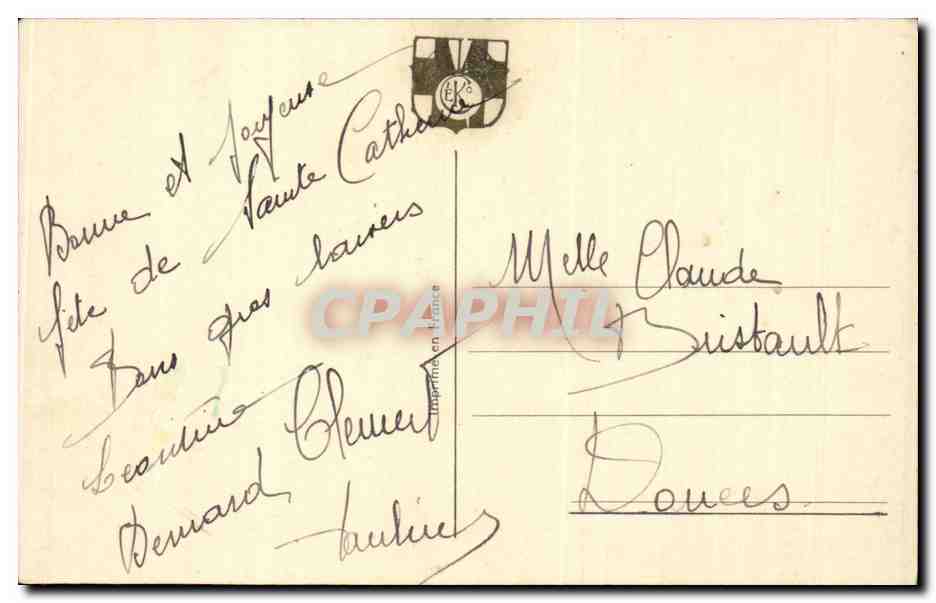 Bonne et Joyeuse
fête de Sainte Catherine
Bons gros baisers
Léontine Clement
Bernard Pauline
Imprimé en France
Melle Claude
Bristault
Douces
CPAPHIL